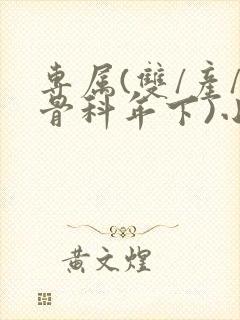 專属(雙/產/
骨科年下)小
黃文煌